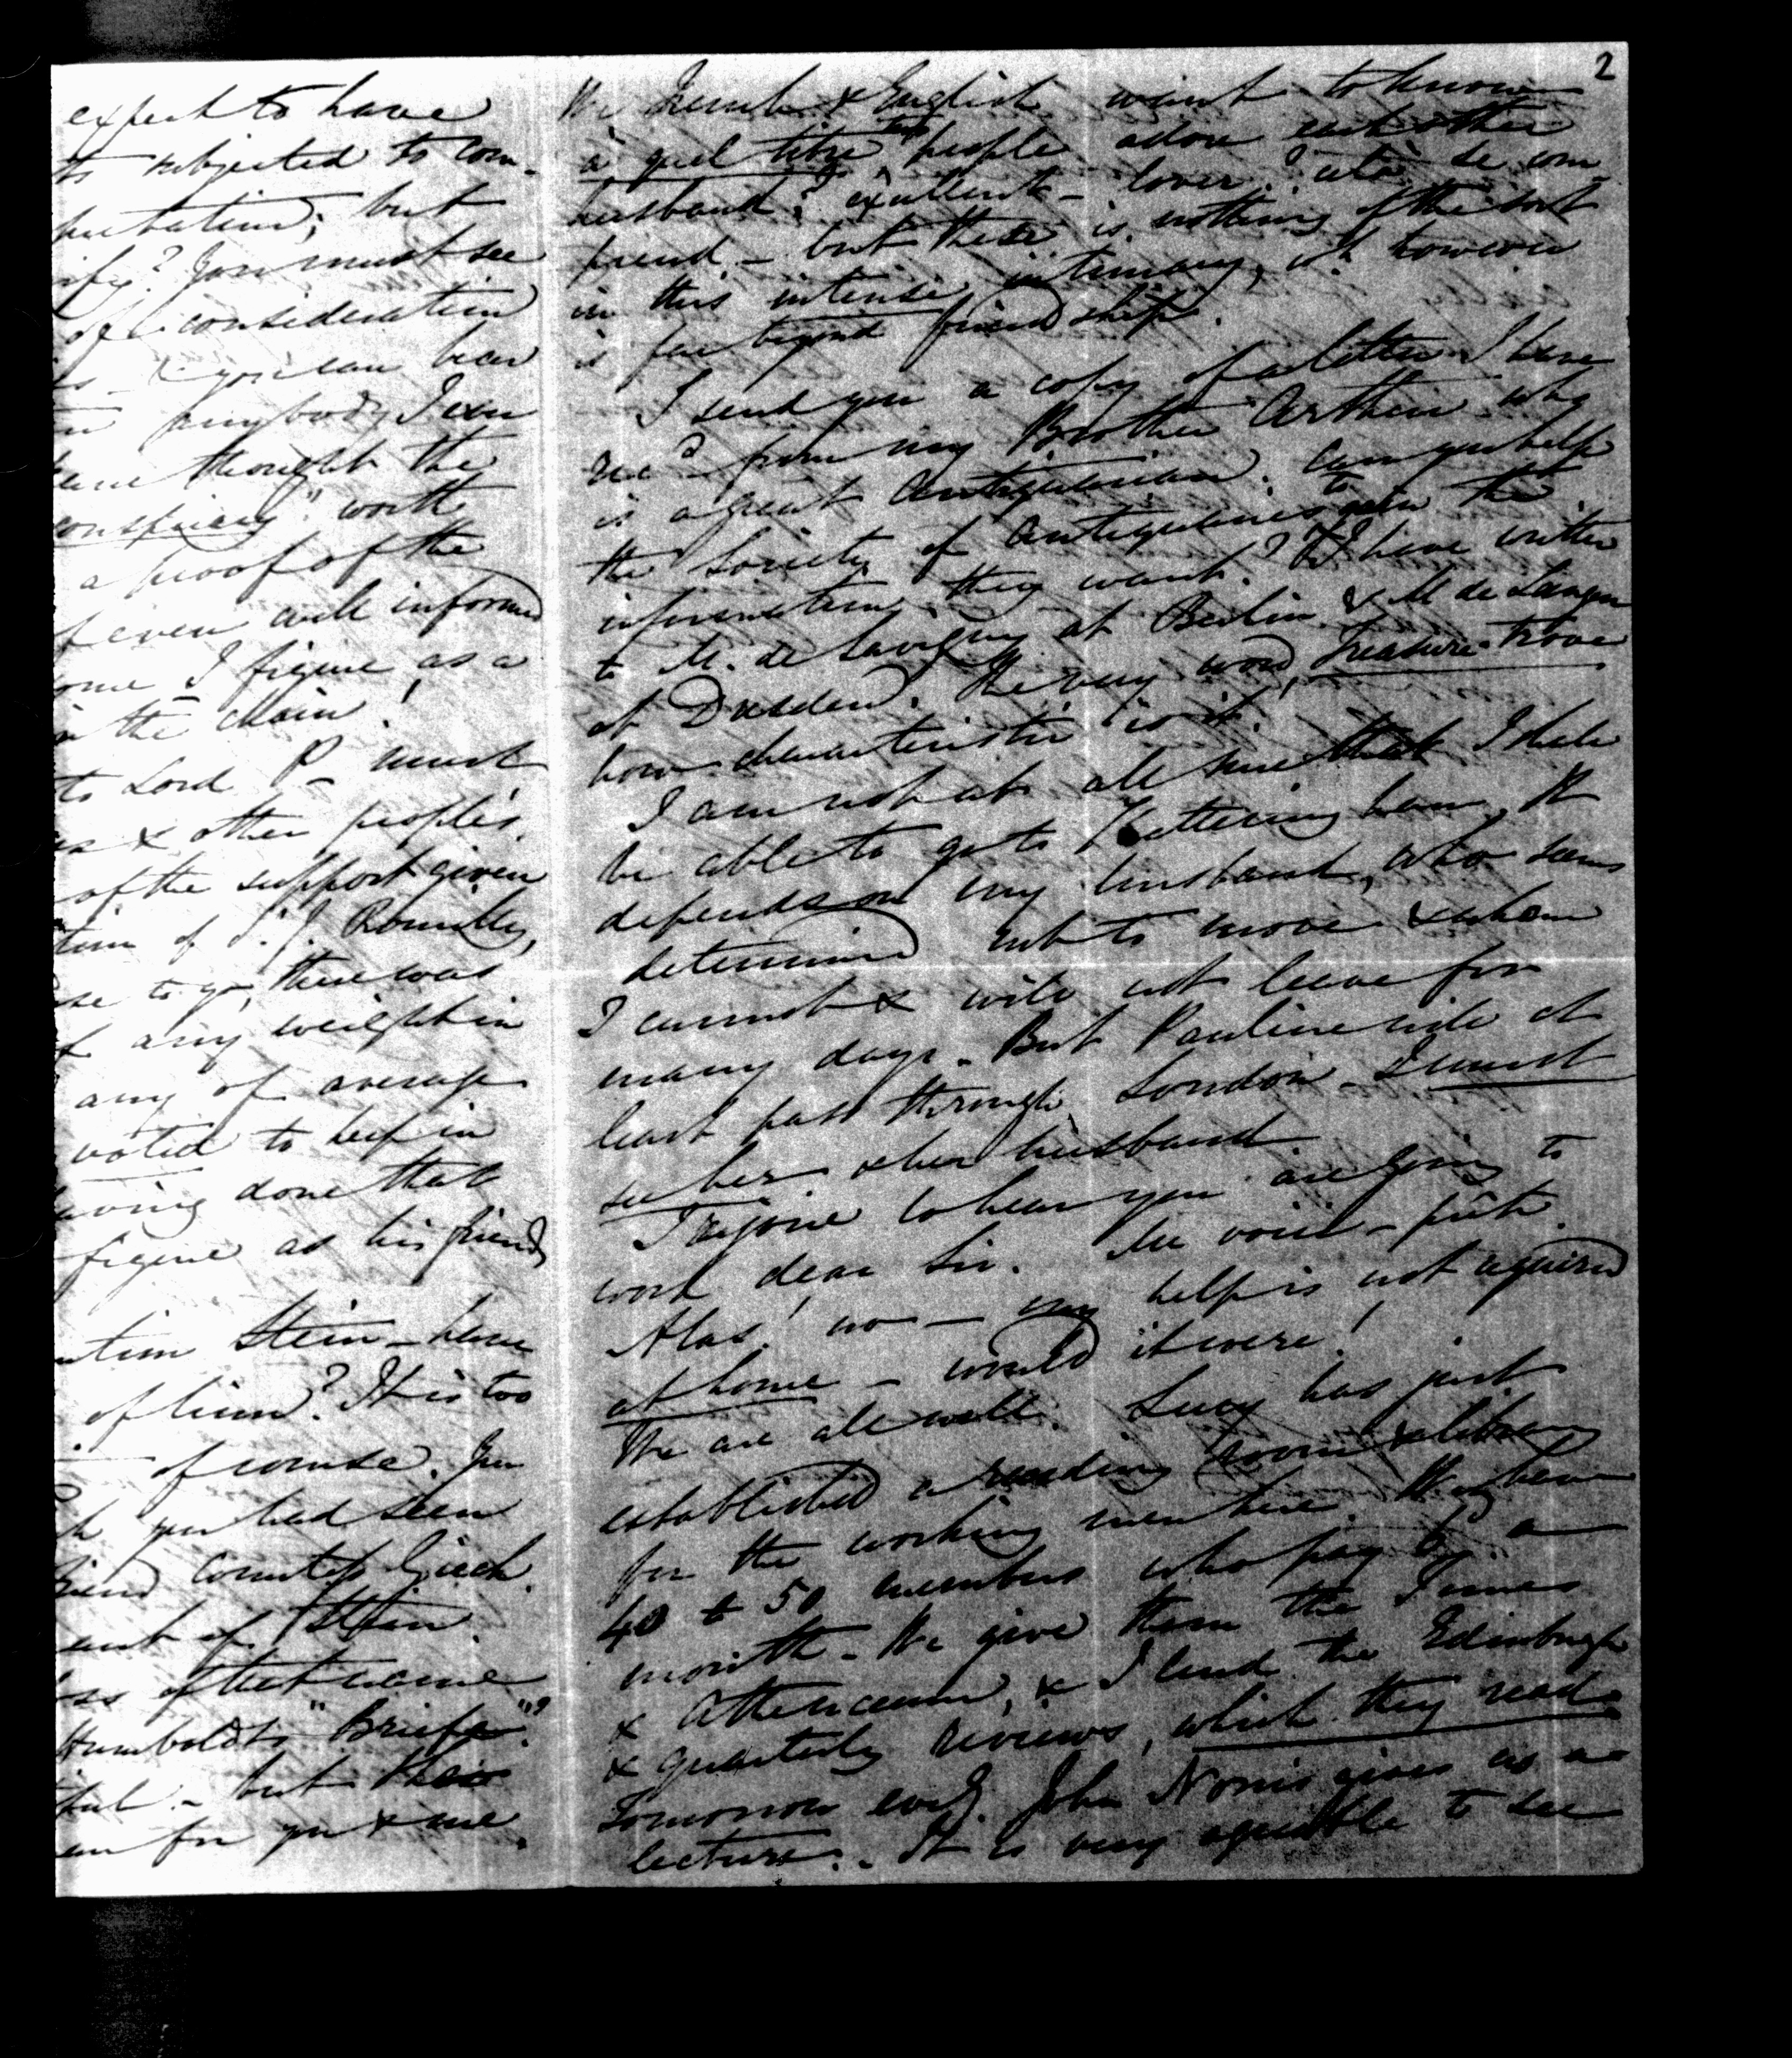 expect to have
to subjected to com-
putation; but
ify? You must see
of consideration
you can bear
anybody I ever
have thought the
conspiracy" worth
a proof of the
f even well informed
ome I figure as a
in the chain!
to Lord P— must
as & other people's.
of the support given
tion of S. J. Romilly,
se to go, there was
f any weight in
any of average
voted to keep in
aving done that
figure as his friend
ution Stein — have
of him? It is too
of course. You
h you had seen
friend Countess Giech.
ent of Stein.
ss of that name
Humboldt's "Briefe"?
ful — but their
en for you & me.
2
We French & English want to know
à quel titre two people adore each other
husband? excellent — lover? cela se com-
friend — but there is nothing of the sort
in this intense intimacy, wh however
is far beyond friendship.
I send you a copy of a letter I have
recd from my Brother Arthur who
is a great Antiquarian. Can you help
the Society of Antiquaries to the
information they want? I have written
to M. de Savigny at Berlin & M de Langen
at Dresden. The very word, Treasure-trove
how characteristic is it!
I am not at all sure that I shall
be able to go to Ketteringham. It
depends on my husband, who seems
determined not to move & whom
I cannot & will not leave for
many days. But Pauline will at
least pass through London. I must
see her & her husband
I rejoice to hear you are going to
work dear Sir. Me voici — prête.
Alas! no — my help is not required
at home — would it were!
We are all well. Lucy has just
established a reading room & library
for the working men here. We have
40 to 50 members who pay 6d a
month. We give them the Times
& Athenaeum, & I lend the Edinburgh
& Quarterly reviews, which they read.
Tomorrow eveg. John Norris gives us a
lecture. It is very agreeable to see